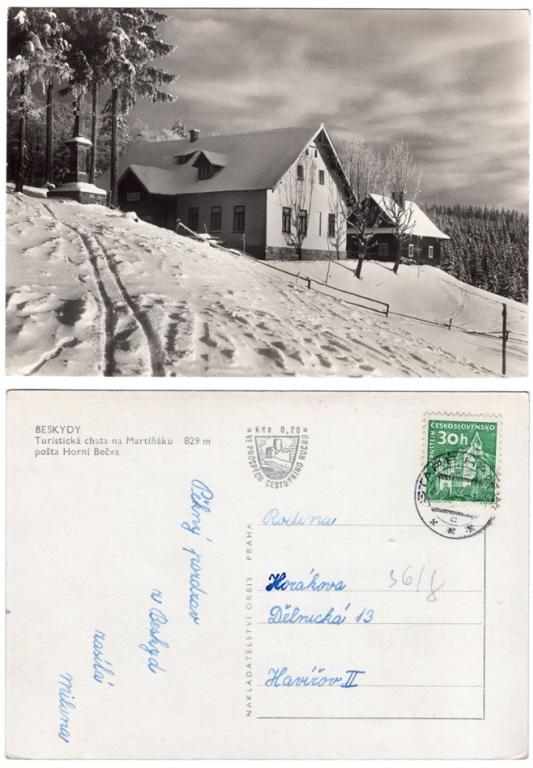 BESKYDY
Turistická chata na Martiňáku 829 m
pošta Horní Bečva
Kčs 0,20
VE PROSPĚCH CESTOVNÍHO RUCHU
ČESKOSLOVENSKO
30h
NAKLADATELSTVÍ ORBIS PRAHA
Pěkný pozdrav
z Beskyd
zasílá
Miluna
Rodina
Horákova
36/8
Dělnická 13
Havířov II